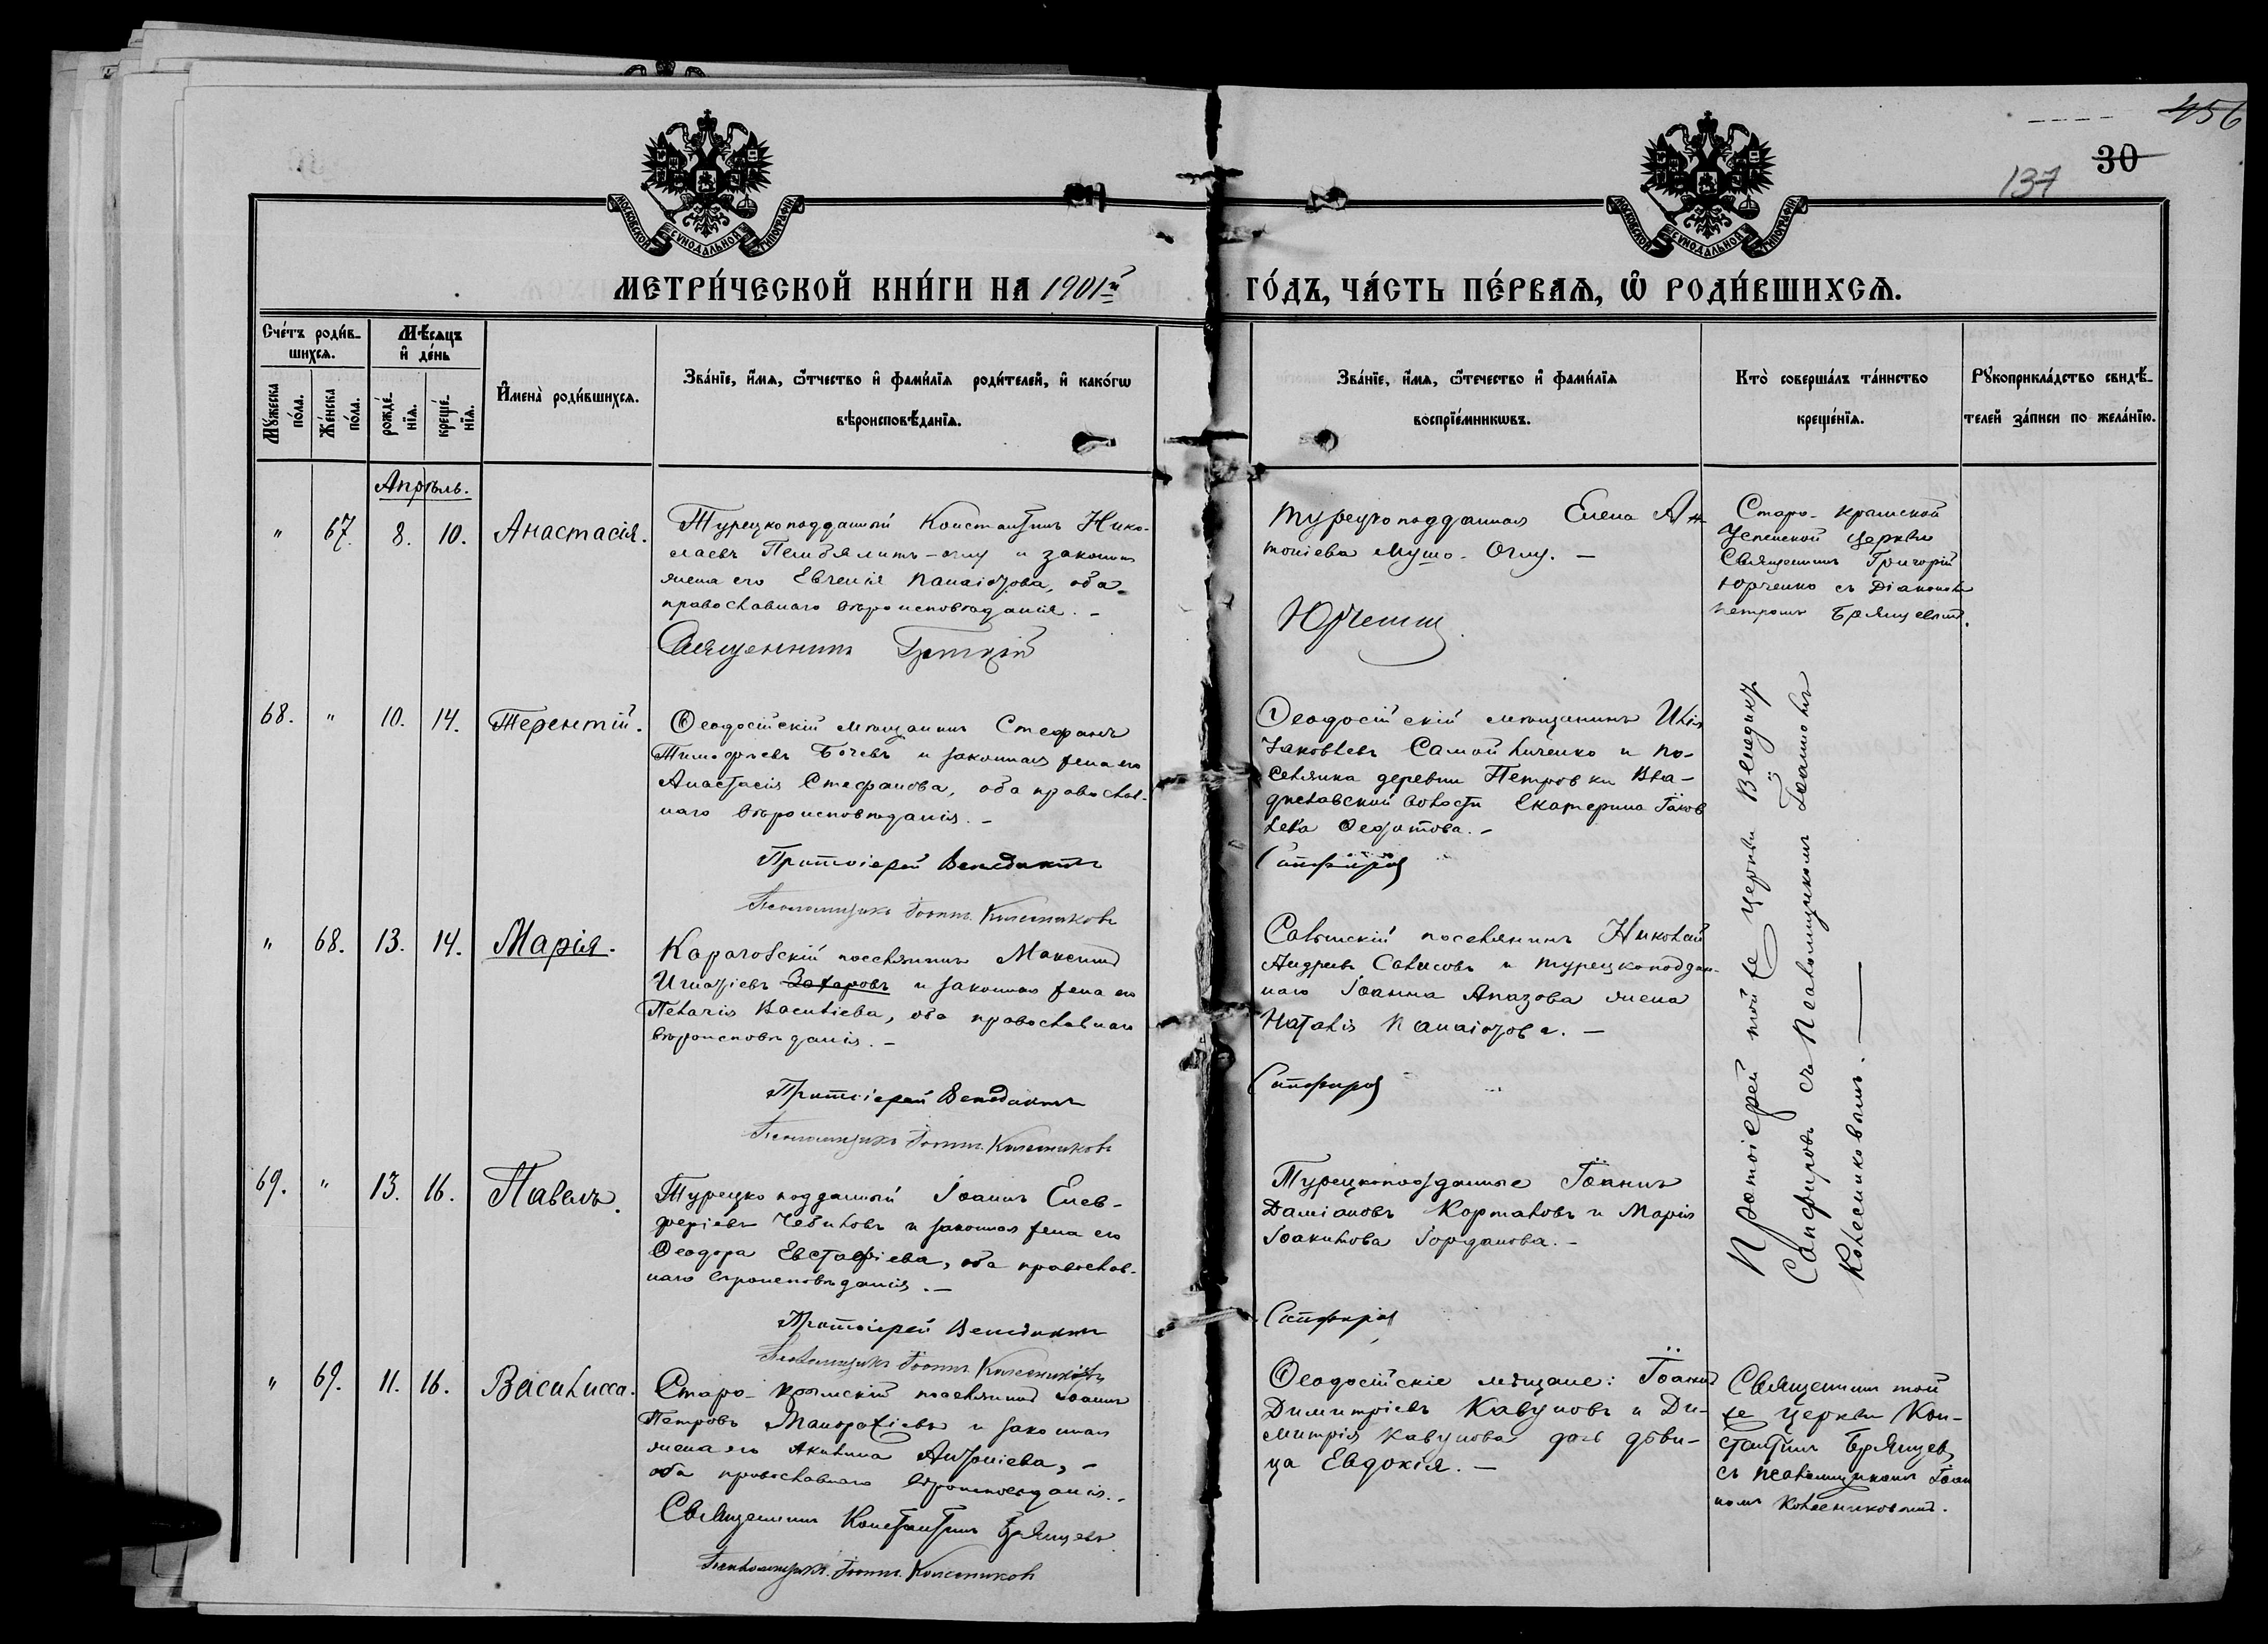 456
30
137
МОСКОВСКОЙ СѴНОДАЛЬНОЙ ТИПОГРАФІИ
МОСКОВСКОЙ СѴНОДАЛЬНОЙ ТИПОГРАФІИ
МЕТРИ́ЧЕСКОЙ КНИ́ГИ НА 1901й ГО́ДЪ, ЧА́СТЬ ПЕ́РВАѦ, Ѡ РОДИ́ВШИХСѦ.
Сче́тъ роди́в-
шихсѧ.
Мꙋжеска по́ла.
Же́нска по́ла.
Мѣ́сѧцъ
и҆ де́нь
рожде́-
нїѧ.
креще́-
нїѧ.
И҆мена̀ роди́вшихсѧ.
Зва́нїе, и҆́мѧ, ѻ҆́тчество и҆ фами́лїѧ роди́телей, и҆ како́гѡ
вѣроисповѣ́данїѧ.
Зва́нїе, и҆́мѧ, ѻ҆те́чество и҆ фами́лїѧ
воспрїе́мникѡвъ.
Кто̀ соверша́лъ та́инство
креще́нїѧ.
Рꙋкоприкла́дство свидѣ́-
телей за́писи по жела́нїю.
Апрѣль.
" 67. 8. 10. Анастасія.
Турецкоподданный Константинъ Нико-
лаевъ и законная
жена его Евгенія Панаіотова, оба
православнаго вѣроисповѣданія. -
Священникъ Григорій
Турецкоподданная Елена Ан-
тоніева Мушо-Оглу. —
Юрченко
Старо-Крымской
Успенской церкви
Священникъ Григорій
Юрченко съ Діакономъ
Петромъ Брянцевымъ.
68. " 10. 14. Терентій.
Ѳеодосійскій мѣщанинъ Стефанъ
Тимофѣевъ Бочевъ и законная жена его
Анастасія Стефанова, оба православ-
наго вѣроисповѣданія. -
Протоіерей Венедиктъ
Псаломщикъ Іоаннъ Колесниковъ
Ѳеодосійскій мѣщанинъ Илія
Іаковлевъ Самойличенко и по-
селянка деревни Петровки Вла-
диславской волости Екатерина Іаков
лева Ѳеодотова. -
Сапфировъ
" 68. 13. 14. Марія.
Караговскій поселянинъ Максимъ
Игнатіевъ Захаровъ и законная жена его
Пелагія Василіева, оба православнаго
вѣроисповѣданія. -
Протоіерей Венедиктъ
Псаломщикъ Іоаннъ Колесниковъ
поселянинъ Николай
Андреевъ и турецкоподдан-
наго Іоанна Апазова жена
Наталія Панаіотова. —
Сапфировъ
69. " 13. 16. Павелъ.
Турецко подданный Іоаннъ Елев-
феріевъ Чебиновъ и законная жена его
Ѳеодора Евстафіева, оба православ-
наго вѣроисповѣданія. —
Протоіерей Венедиктъ
Псаломщикъ Іоаннъ Колесниковъ
Турецкоподданные Іоаннъ
Даміановъ Корталовъ и Марія
Іоакимова Іорданова. -
Сапфировъ
Протоіерей той же церкви Венедиктъ
Сапфировъ съ Псаломщикомъ Іоанномъ
Колесниковымъ. —
" 69. 11. 16. Василисса.
Старо-Крымскій поселянинъ Іоаннъ
Петровъ и законная
жена его Акилина Антоніева, -
оба православнаго вѣроисповѣданія. -
Священникъ Константинъ Брянцевъ
Псаломщикъ Іоаннъ Колесниковъ
Ѳеодосійскіе мѣщане: Іоаннъ
Димитріевъ Кавуновъ и Ди-
митрія Кавунова дочь дѣви-
ца Евдокія. —
Священникъ той
же церкви Кон-
стантинъ Брянцевъ
съ псаломщикомъ Іоан
номъ Колесниковымъ.